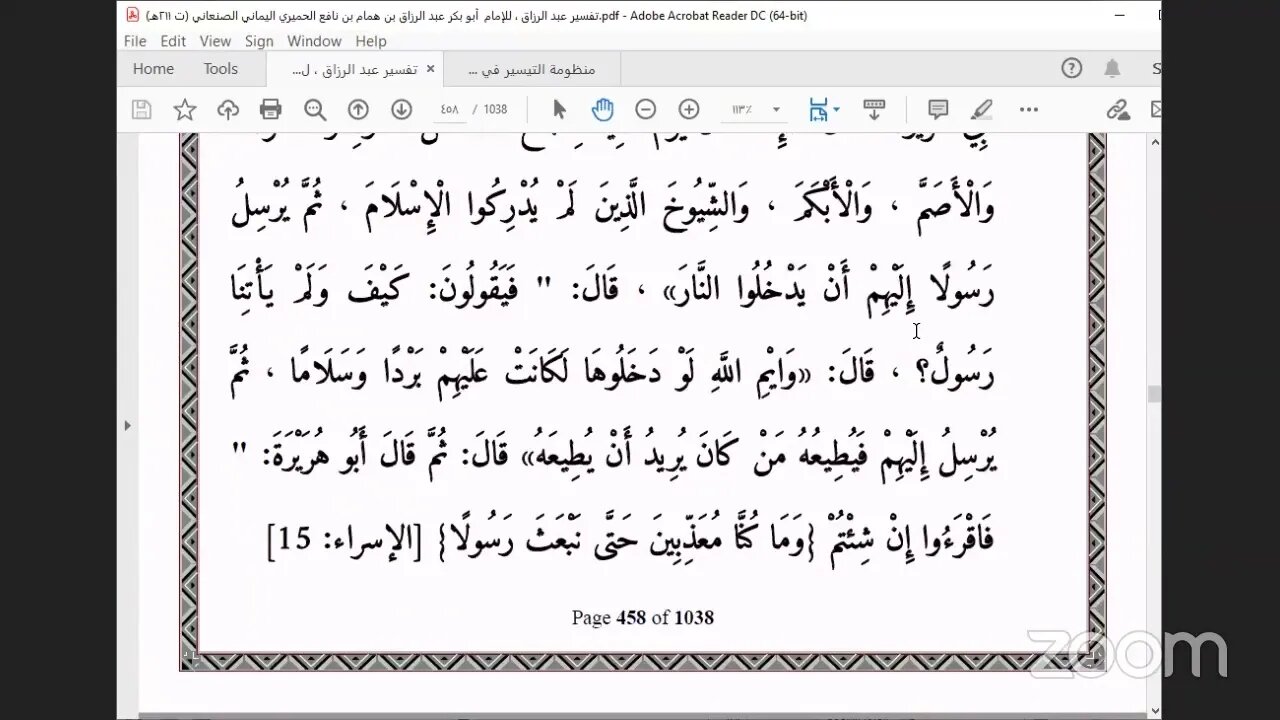 تفسير عبد الرزاق ، للإمام أبو بكر عبد الرزاق بن همام بن نافع الحميري اليماني الصنعاني (ت ٢١١هـ).pdf - Adobe Acrobat Reader DC (64-bit)
File Edit View Sign Window Help
Home Tools تفسير عبد الرزاق ، ل... × منظومة التيسير في ...
٤٥٨ / 1038 ١١٣٪
وَالْأَصَمَّ ، وَالْأَبْكَمَ ، وَالشِّيُوخَ الَّذِينَ لَمْ يُدْرِكُوا الْإِسْلَامَ ، ثُمَّ يُرْسِلُ
رَسُولًا إِلَيْهِمْ أَنْ يَدْخُلُوا النَّارَ» ، قَالَ: " فَيَقُولُونَ: كَيْفَ وَلَمْ يَأْتِنَا
رَسُولٌ؟ ، قَالَ: «وَايْمِ اللَّهِ لَوْ دَخَلُوهَا لَكَانَتْ عَلَيْهِمْ بَرْدًا وَسَلَامًا ، ثُمَّ
يُرْسِلُ إِلَيْهِمْ فَيُطِيعُهُ مَنْ كَانَ يُرِيدُ أَنْ يُطِيعَهُ» قَالَ: ثُمَّ قَالَ أَبُو هُرَيْرَةَ: "
فَاقْرَءُوا إِنْ شِئْتُمْ {وَمَا كُنَّا مُعَذِّبِينَ حَتَّى نَبْعَثَ رَسُولًا} [الإسراء: 15]
Page 458 of 1038
zoom